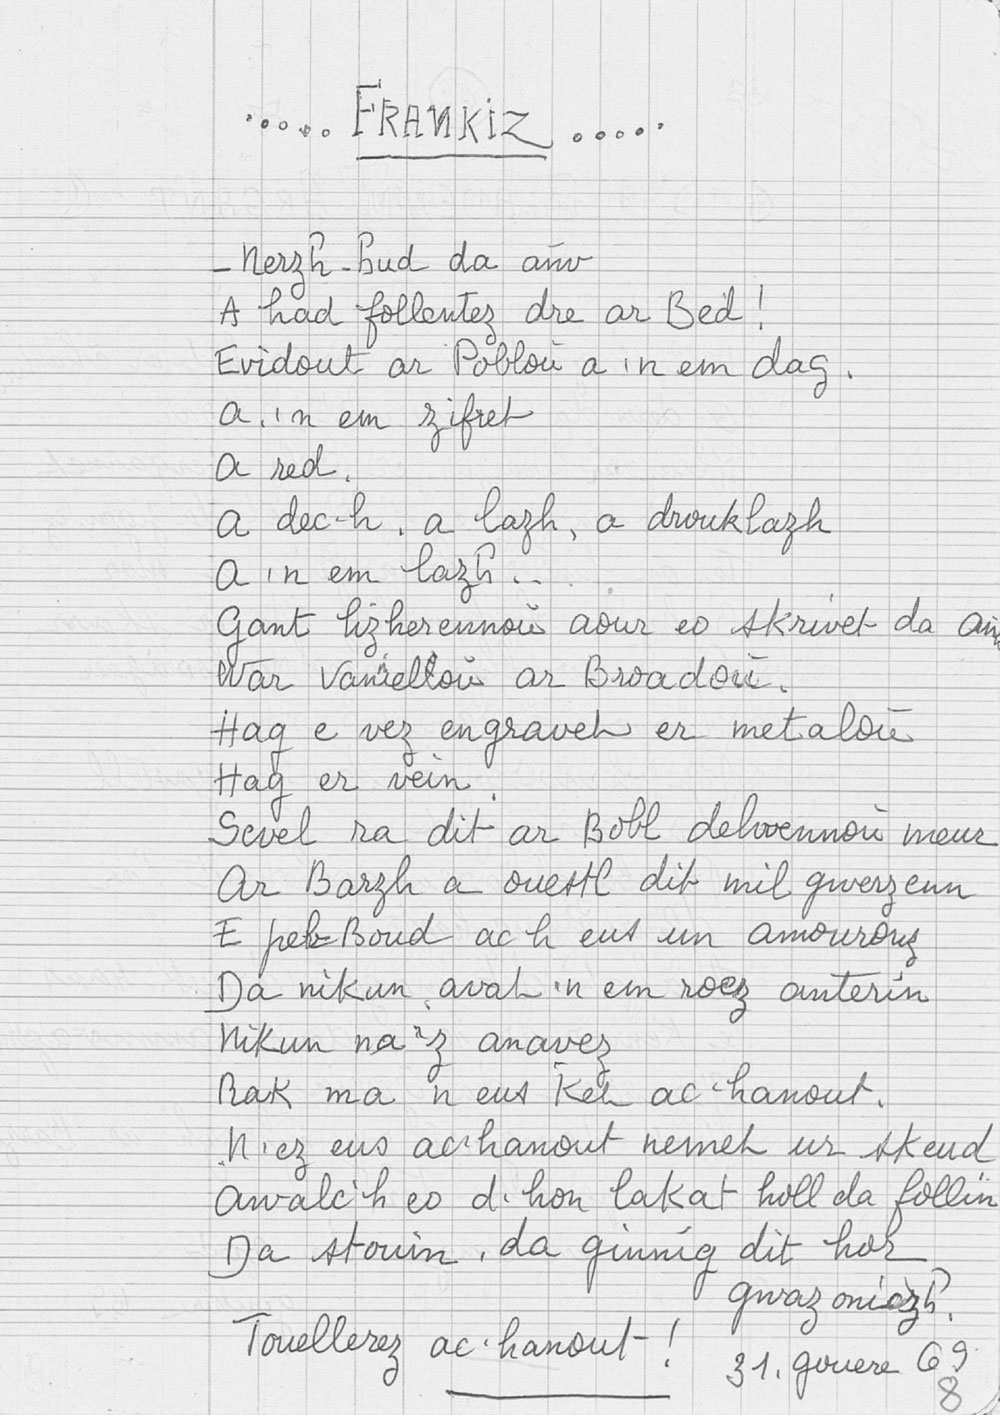 ..... FRANKIZ .....
- Nerzh-hud da añv
A had follentez dre ar Bed !
Evidout ar Poblou a 'n em dag.
A 'n em zifret
A red.
A dec'h, a lazh, a drouklazh
A 'n em lazh...
Gant lizherennoù aour eo skrivet da añv
War vanielloù ar Broadoù.
Hag e vez engravet er metaloù
Hag er vein.
Sevel ra dit ar Bobl delwennoù meur
Ar Barzh a ouestl dit mil gwerzenn
E peb Boud ac'h eus un amourouz
Da nikun avat 'n em roez anterin
Nikun na 'z anavez
Rak ma 'n eus ket ac'hanout.
N'ez eus ac'hanout nemet ur skeud
Awalc'h eo d'hon lakat holl da follin
Da stouin, da ginnig dit hor
gwazoniezh.
Touellerez ac'hanout !
31. gouere 69
8